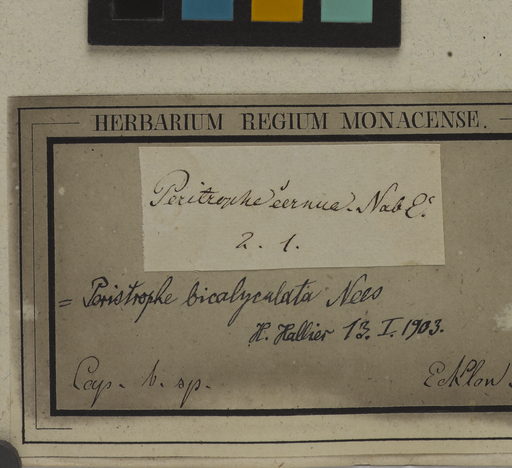 HERBARIUM REGIUM MONACENSE.
Peritrophe cernua. Nab E.
2. 1.
= Peristrophe bicalyculata Nees
H. Hallier 13. I. 1903.
Cap. b. sp.
Ecklon.